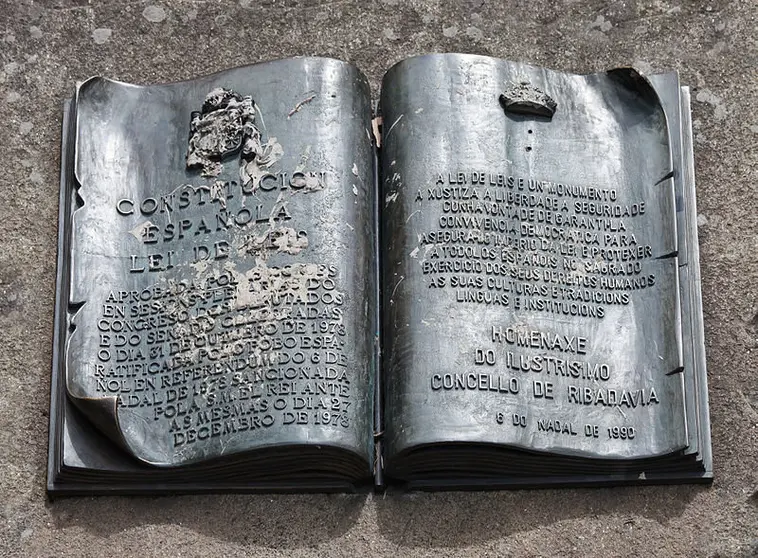 CONSTITUCION
ESPAÑOLA
LEI DE LEIS
APROBADA POLAS CORTES
EN SESIONS PLENARIAS DO
CONGRESO DOS DEPUTADOS
E DO SENADO CELEBRADAS
O DIA 31 DE OUTUBRO DE 1978
RATIFICADA POLO POBO ESPA
ÑOL EN REFERENDUM DO 6 DE
NADAL DE 1978 SANCIONADA
POLA S.M. EL REI ANTE
AS MESMAS O DIA 27
DECEMBRO DE 1978
A LEI DE LEIS E UN MONUMENTO
A XUSTIZA A LIBERDADE A SEGURIDADE
CUNHA VONTADE DE GARANTI-LA
CONVIVENCIA DEMOCRATICA PARA
ASEGURA-LO IMPERIO DA LEI E PROTEXER
A TODOLOS ESPAÑOIS NO SAGRADO
EXERCICIO DOS SEUS DEREITOS HUMANOS
AS SUAS CULTURAS E TRADICIONS
LINGUAS E INSTITUCIONS
HOMENAXE
DO ILUSTRISIMO
CONCELLO DE RIBADAVIA
6 DO NADAL DE 1990